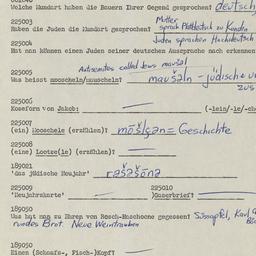 Welche Mundart haben die Bauern Ihrer Gegend gesprochen? deutsch
225003 Mutter
Haben die Juden die Mundart gesprochen? sprach Plattdeutsch zu Kunden
Juden sprachen Hochdeutsch
225004
Hat man können einen Juden seiner deutschen Aussprache nach erkennen
225005 Antisemites called Jews maušəl
Was heisst mooscheln/mauscheln? maušəln – jüdisch
225006
Koseform von Jakob: (-lein/-le/-che
225007
(ein) Mooschele (erzählen)? = Geschichte
225008
(eine) Lootze(le) (erzählen)?
189021
'das jüdische Neujahr'
225009 225010
'Neujahrskarte' )Goserbrief?
189050
Was hat man zu Ehren von Rosch-Haschoone gegessen? Süssapfel,
rundes Brot. Neue Weintrauben
189050
Einen (Schoafs-, Fisch-)Kopf?